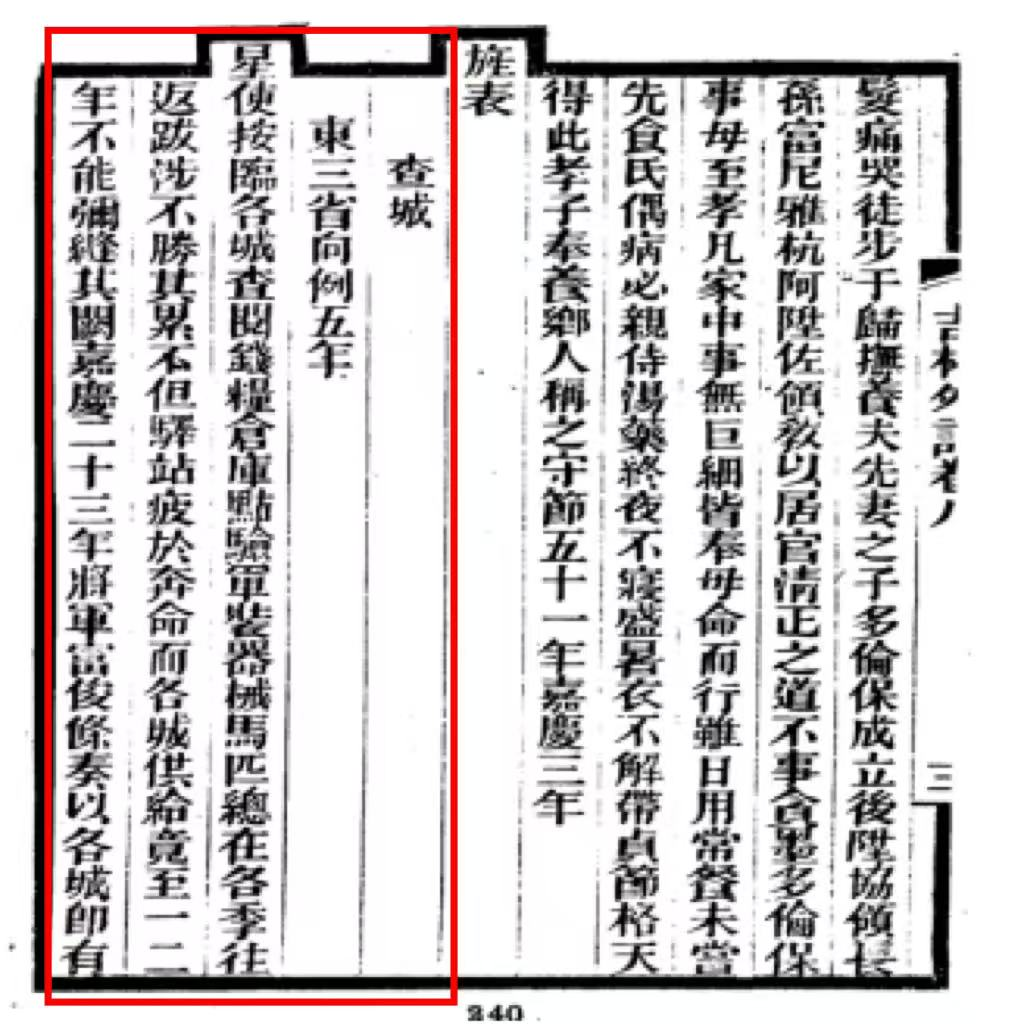 髮痛哭徒步于歸撫養夫先妻之子多倫保成立後陞協領長
孫富尼雅杭阿陞佐領敎以居官清正之道不事貪墨多倫保
事母至孝凡家中事無巨細皆奉母命而行雖日用常餐未嘗
先食氏偶病必親侍湯藥終夜不寢盛暑衣不解帶貞節格天
得此孝子奉養鄉人稱之守節五十一年嘉慶三年
旌表
查城
東三省向例五年
星使按臨各城查閱錢糧倉庫點驗軍裝器械馬匹總在冬季往
返跋涉不勝其累不但驛站疲於奔命而各城供給竟至一二
年不能彌縫其闕嘉慶二十三年將軍富俊條奏以各城卽有
吉林外記卷八
三
240